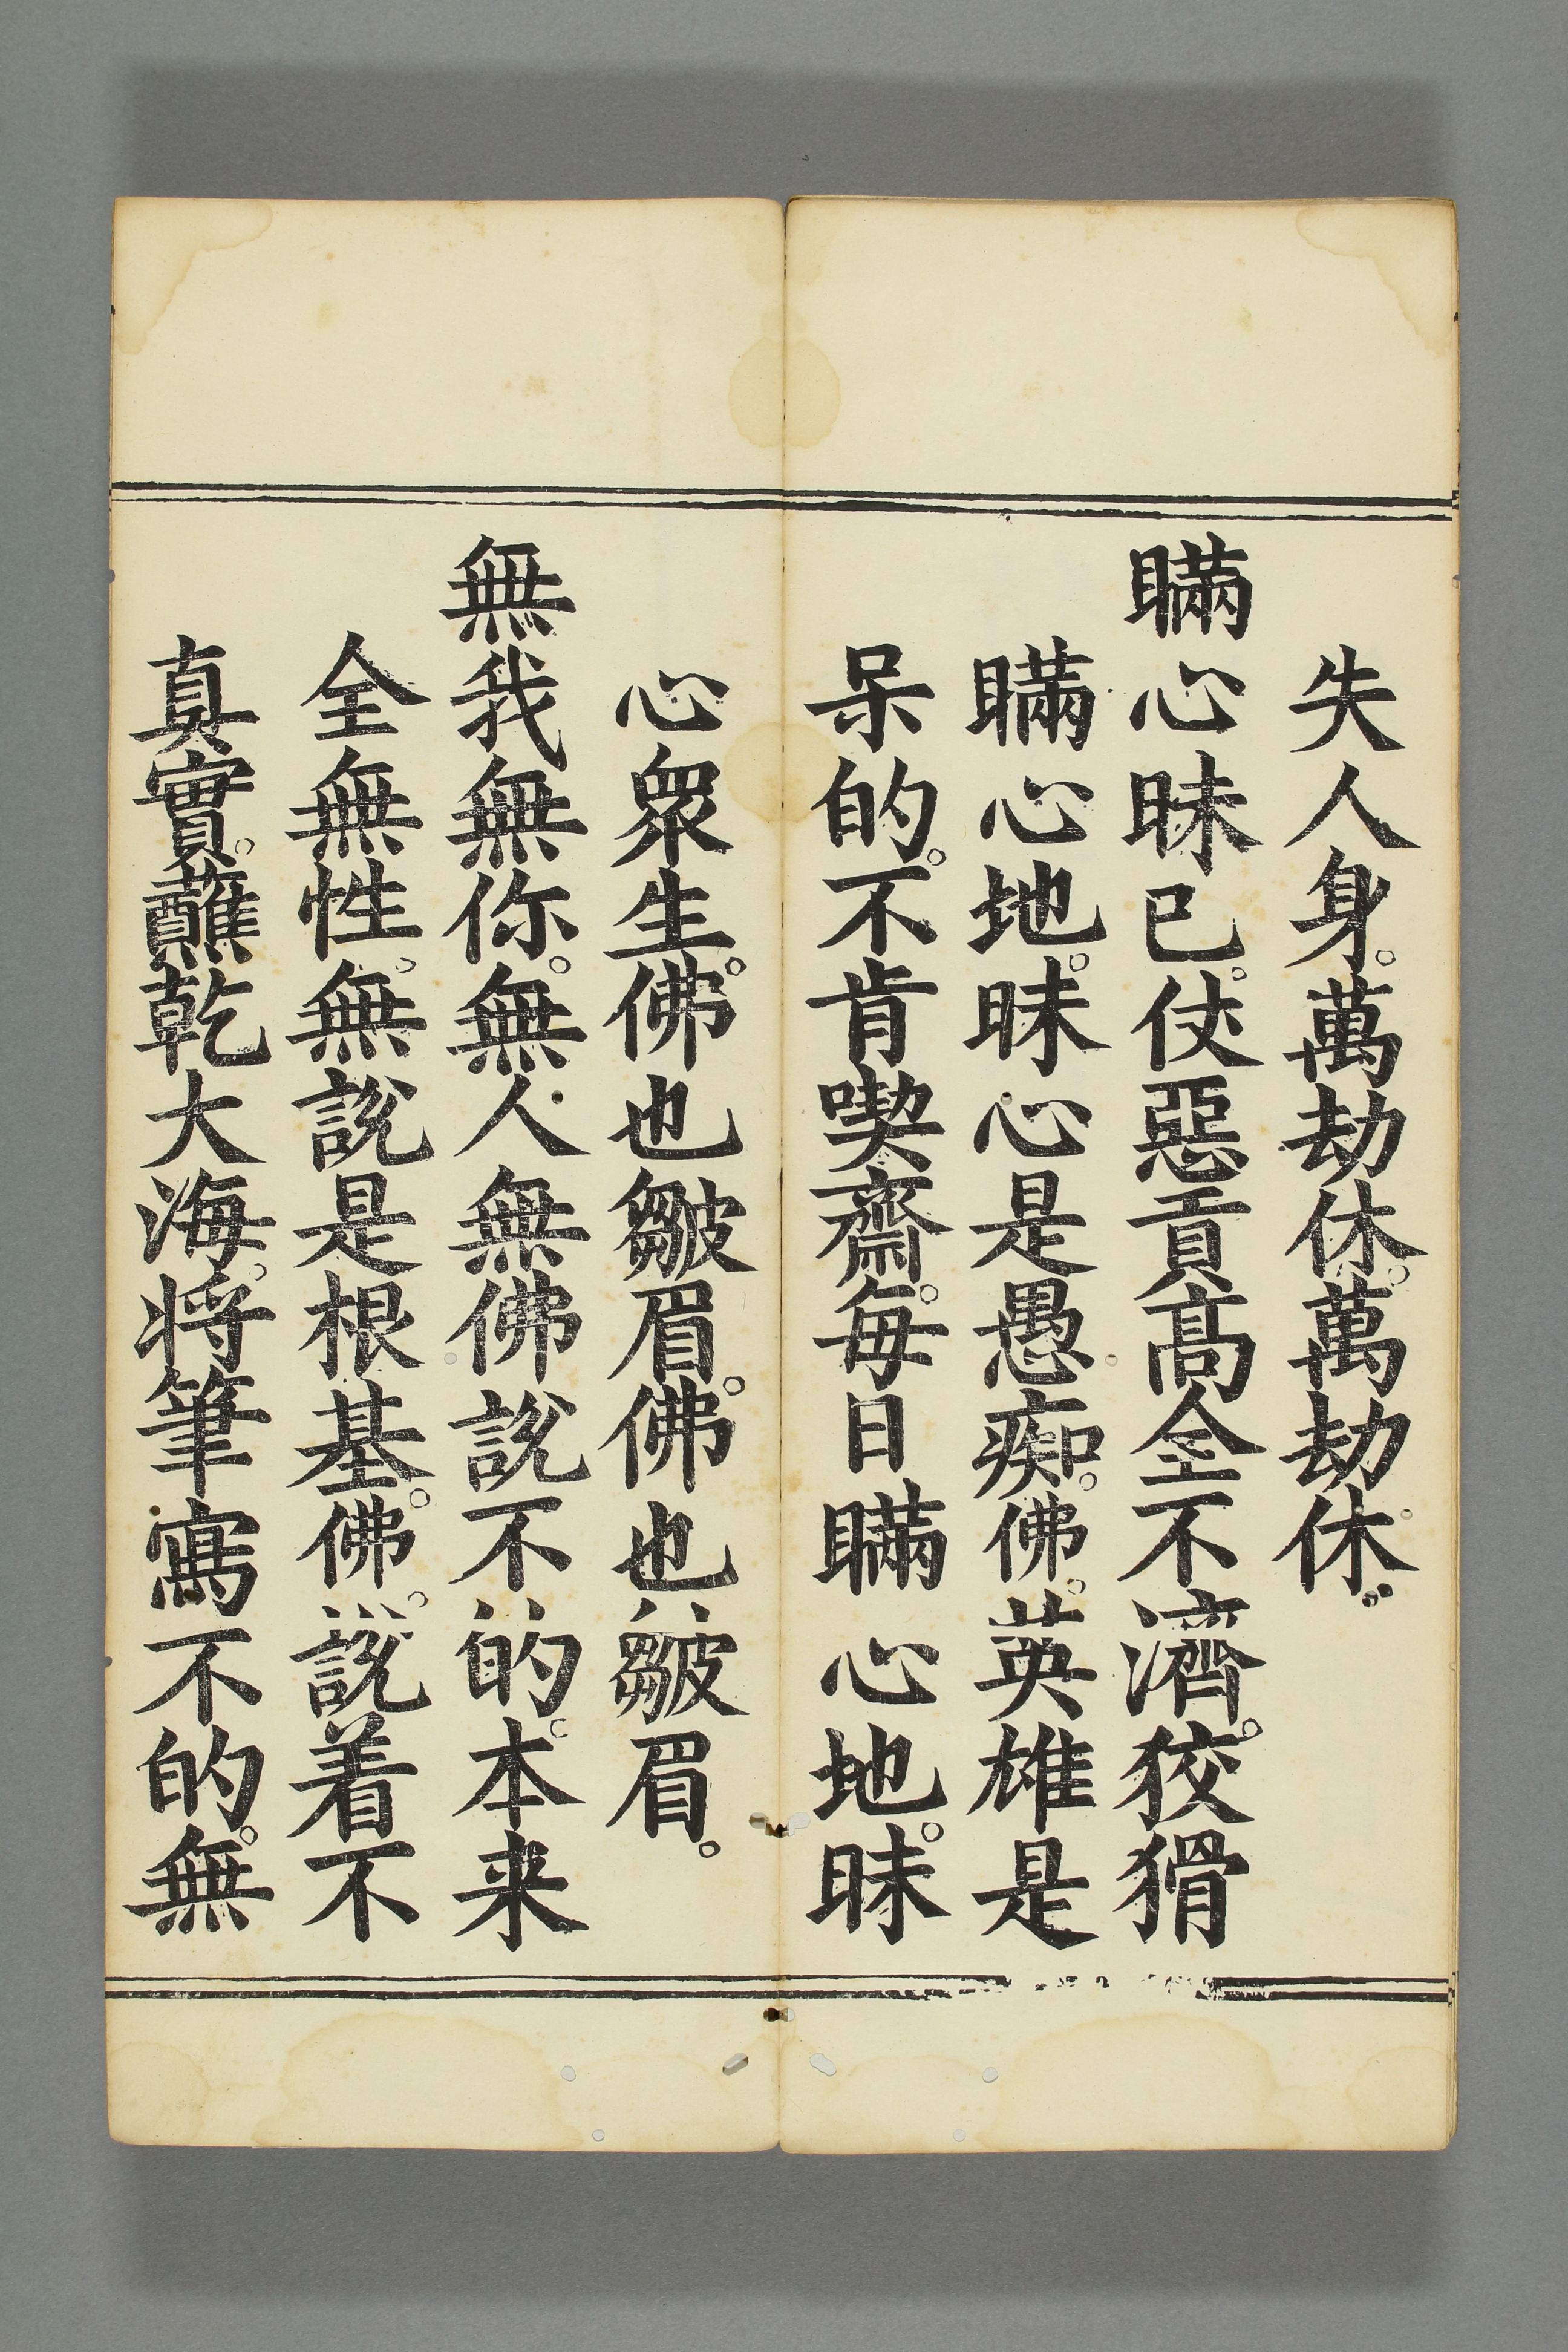 失人身。萬劫休。萬劫休。
瞞心昧已。仗惡貢高全不濟。狡猾
瞞心地。昧心是愚痴。佛。英雄是
呆的。不肯喫齋。每日瞞心地。昧
心衆生。佛也皺眉。佛也皺眉。
無我無你。無人無佛說不的。本来
全無性。無說是根基。佛。說着不
真實。蘸乾大海。将筆寫不的。無